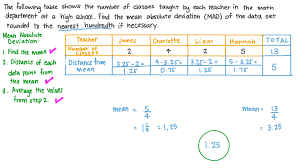 The following table shows the number of classes taught by each teacher in the math
department at a high school. Find the mean absolute deviation (MAD) of the data set,
rounded to the nearest hundredth if necessary.
Mean Absolute
Deviation:
1. Find the mean
2. Distance of each
data point from
the mean
3. Average the values
from step 2.
Teacher James Charlotte Liam Hannah TOTAL
Number of
classes 2 4 2 5 13
Distance from
mean 3.25-2= 4-3.25= 3.25-2= 5-3.25= 5
1.25 0.75 1.25 1.75
mean = 5/4
= 1 1/4 = 1.25
mean = 13/4
= 3.25
1.25